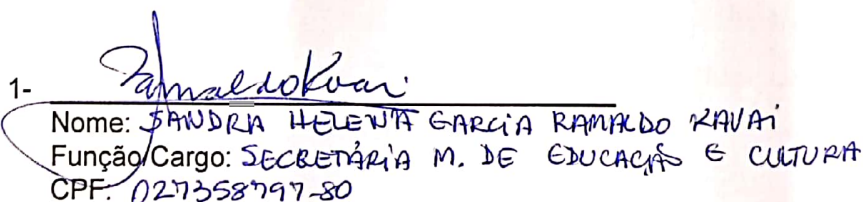 1-
Nome: SANDRA HELENA GARCIA RAMALDO KAVAI
Função/Cargo: SECRETÁRIA M. DE EDUCAÇÃO E CULTURA
CPF: 027358797-80